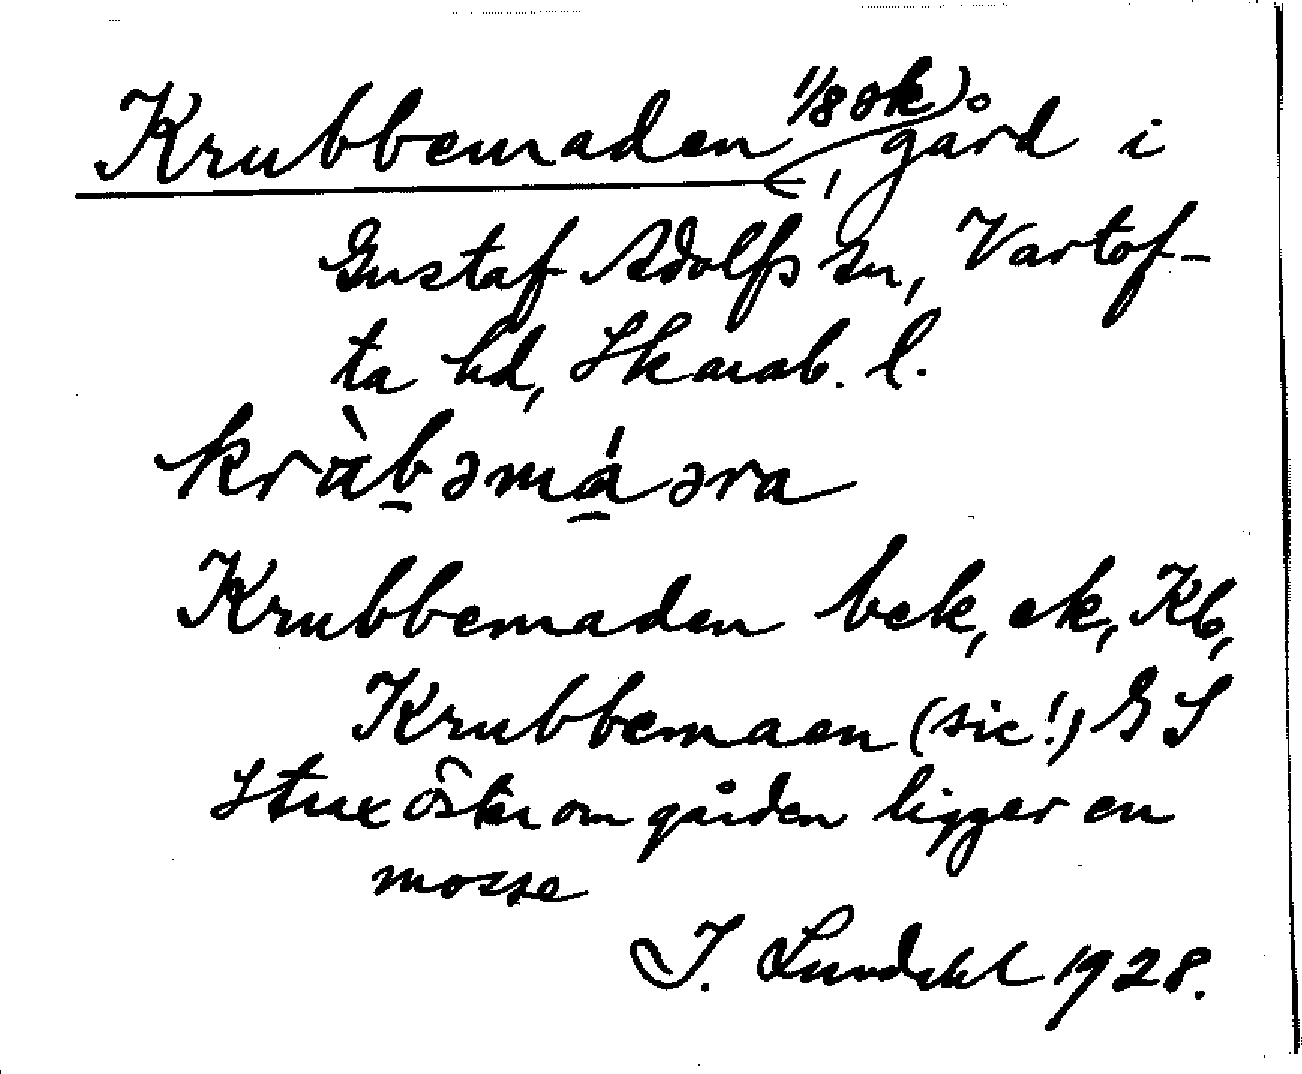 Krubbemaden (1/8 ek), gård i
Gustaf Adolfs sn, Vartof-
ta hd, Skarab. l.
kràbəmáəra
Krubbemaden bek, ek, Kb,
Krubbemaen (sic!) GS
Strax öster om gården ligger en
mosse
I. Lundahl 1928.